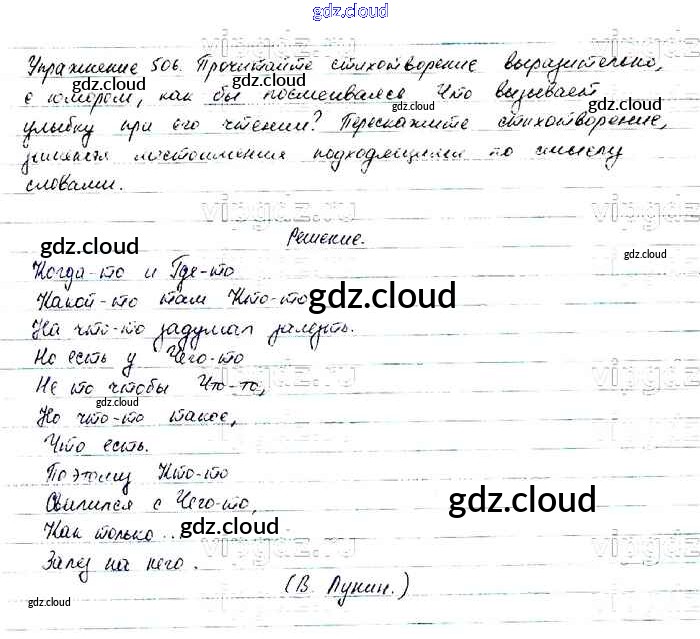 gdz.cloud
Упражнение 506. Прочитайте стихотворение выразительно,
с юмором, как бы посмеиваясь Что вызывает
улыбку при его чтении? Перескажите стихотворение,
местоимения подходящими по смыслу
словами.
Решение.
Когда-то и Где-то
Какой-то там Кто-то
На что-то задумал залезть.
Но есть у Чего-то
Не то чтобы Что-то,
Но что-то такое,
Что есть.
Поэтому Кто-то
Свалился с Чего-то,
Как только...
Залез на него.
(В. Лунин.)
gdz.cloud
gdz.cloud
gdz.cloud
gdz.cloud
gdz.cloud
gdz.cloud
gdz.cloud
gdz.cloud
gdz.cloud
gdz.cloud
gdz.cloud
vipgdz.ru
vipgdz.ru
vipgdz.ru